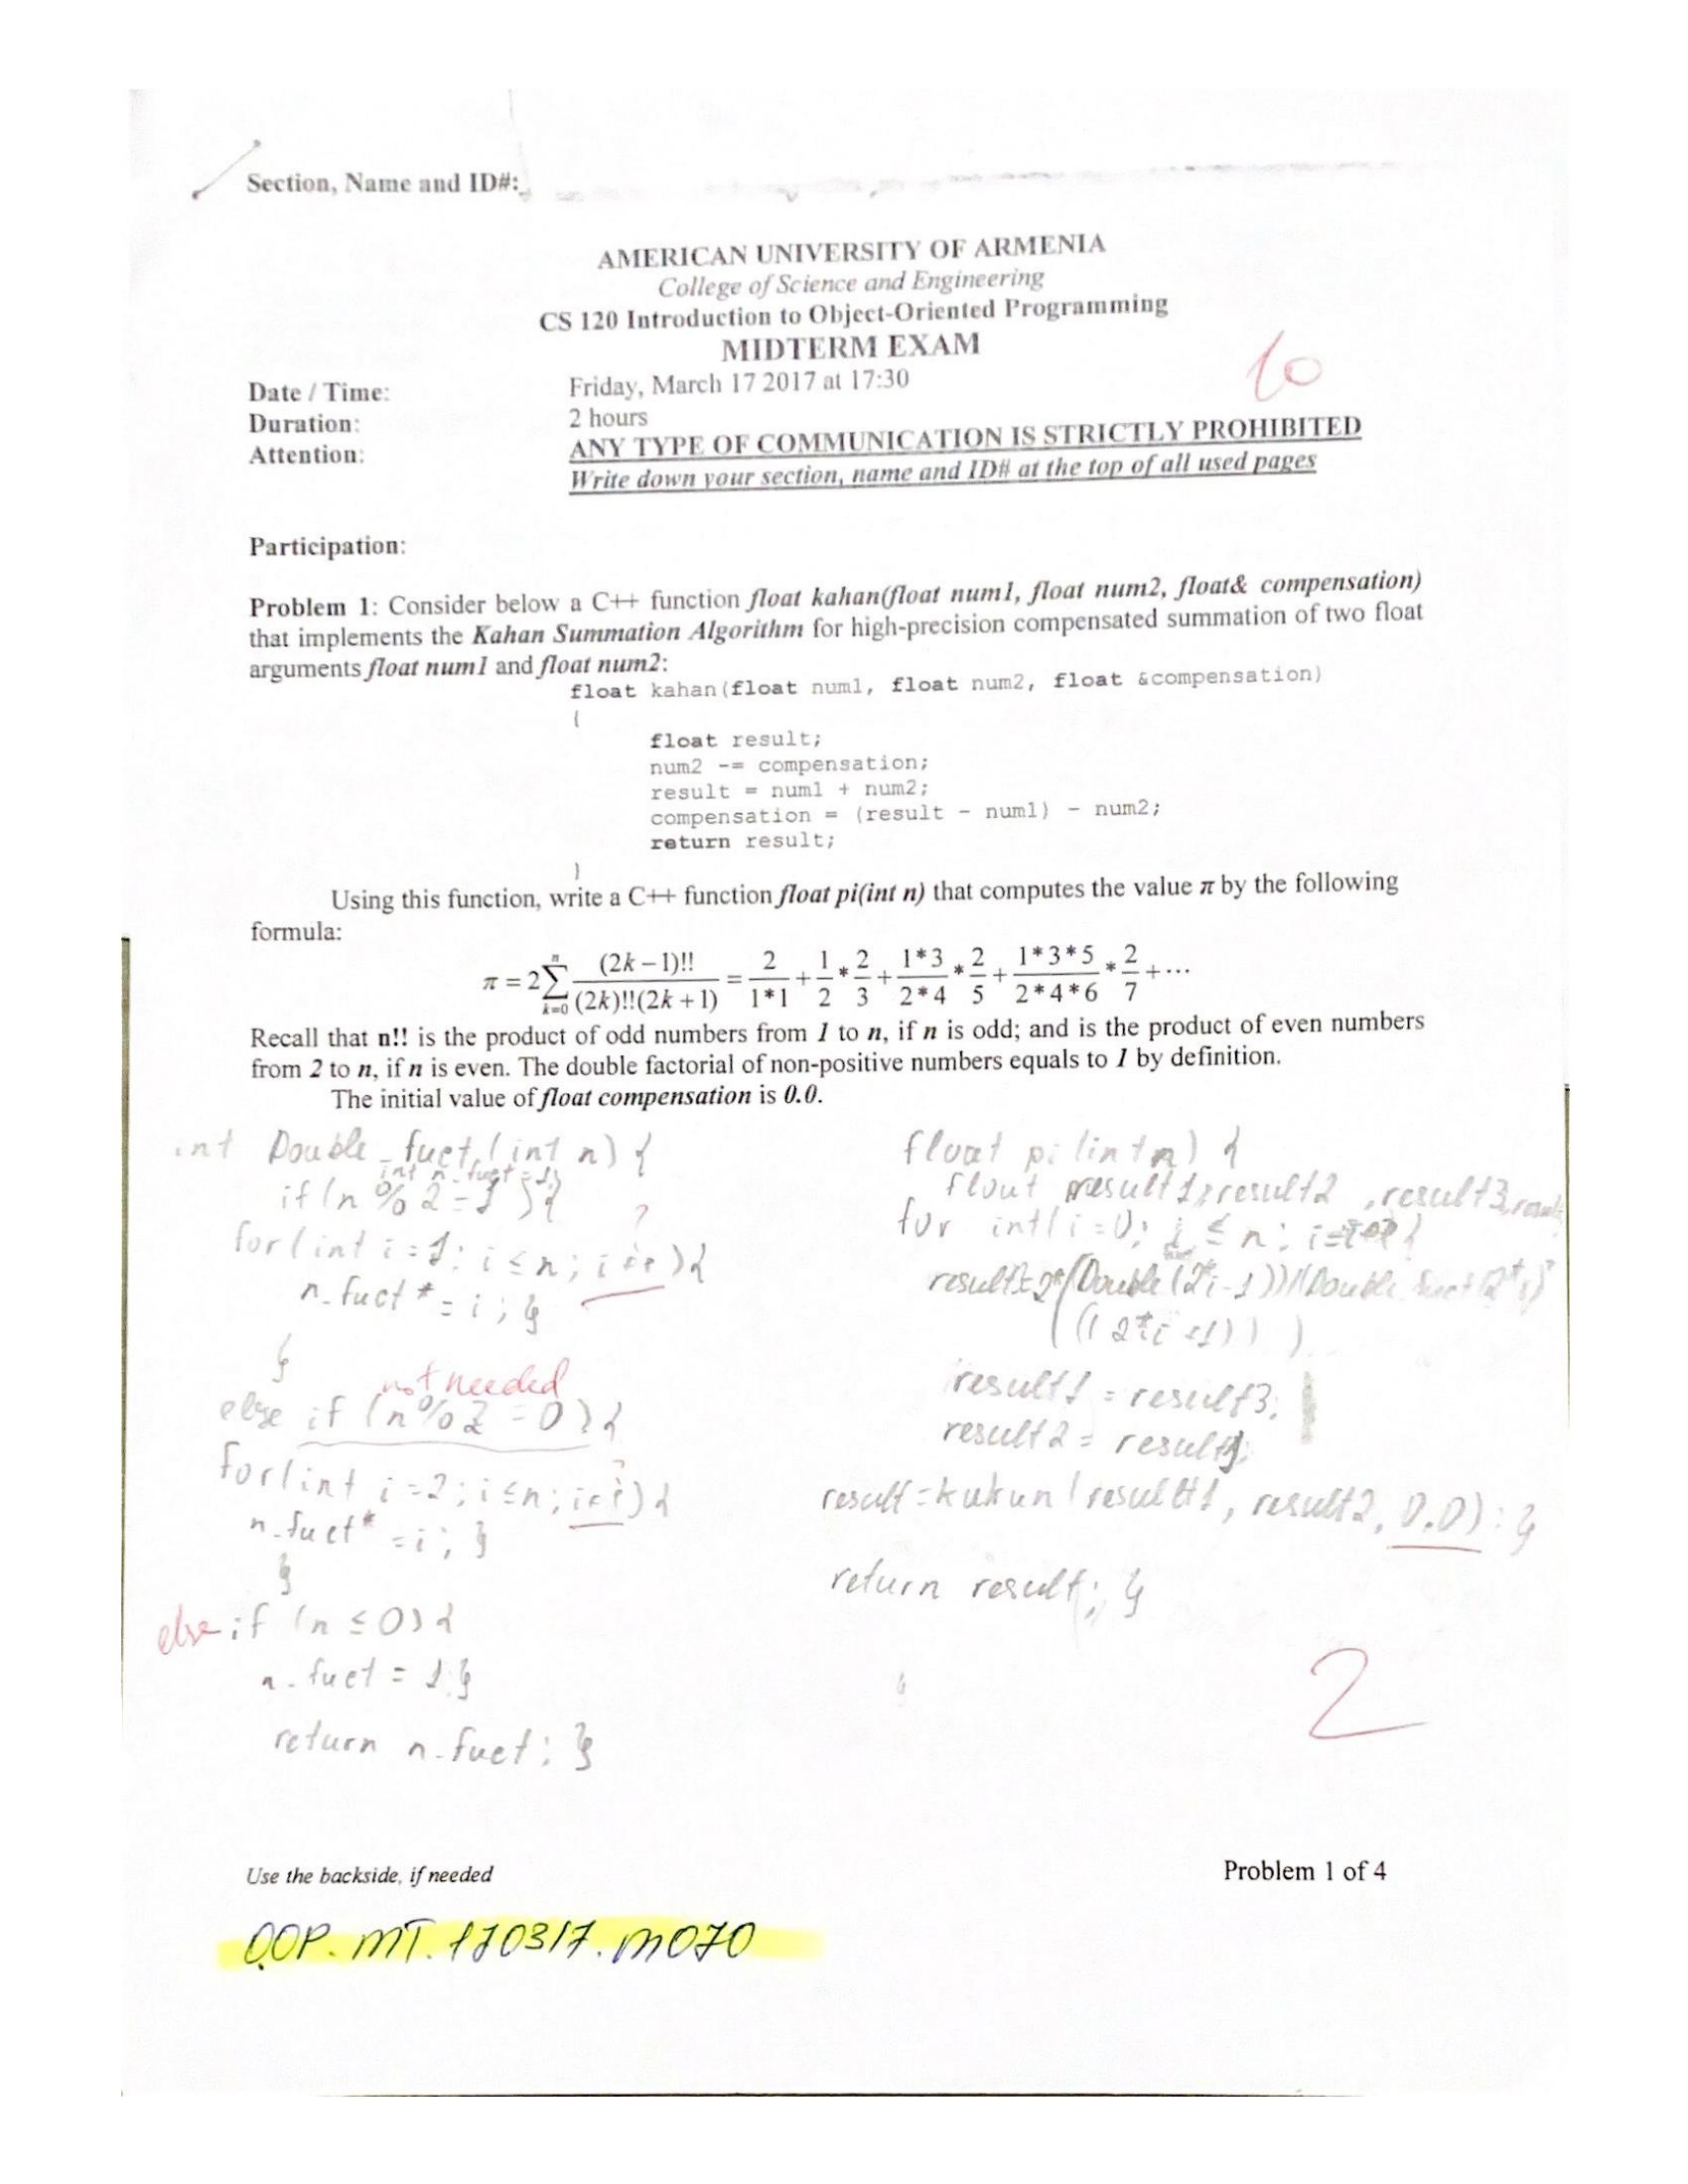 Section, Name and ID#:
AMERICAN UNIVERSITY OF ARMENIA
College of Science and Engineering
CS 120 Introduction to Object-Oriented Programming
MIDTERM EXAM
10
Date / Time: Friday, March 17 2017 at 17:30
Duration: 2 hours
Attention: ANY TYPE OF COMMUNICATION IS STRICTLY PROHIBITED
Write down your section, name and ID# at the top of all used pages
Participation:
Problem 1: Consider below a C++ function float kahan(float num1, float num2, float& compensation)
that implements the Kahan Summation Algorithm for high-precision compensated summation of two float
arguments float num1 and float num2:
float kahan(float num1, float num2, float &compensation)
{
float result;
num2 -= compensation;
result = num1 + num2;
compensation = (result - num1) - num2;
return result;
}
Using this function, write a C++ function float pi(int n) that computes the value π by the following
formula:
π = 2∑_{k=0}^{n} (2k – 1)!! / ((2k)!!(2k + 1)) = 2/(1*1) + 1/2 * 2/3 + (1*3)/(2*4) * 2/5 + (1*3*5)/(2*4*6) * 2/7 + ···
Recall that n!! is the product of odd numbers from 1 to n, if n is odd; and is the product of even numbers
from 2 to n, if n is even. The double factorial of non-positive numbers equals to 1 by definition.
The initial value of float compensation is 0.0.
int Double_fuct (int n) {
int n_fuct = 1;
if (n % 2 = 1) {
?
for (int i = 1; i ≤ n; i++) {
n_fuct * = i; }
}
not needed
else if (n % 2 = 0) {
for (int i = 2; i ≤ n; i++) {
?
n_fuct * = i; }
}
else if (n ≤ 0) {
n_fuct = 1; }
return n_fuct; }
float pi (int n) {
flout result1, result2, result3,
for int (i = 0; i ≤ n; {
(Double (2*i-1)) / (Double fuct (2*i)
((2*i+1)) )
result1 = result3;
result2 =
result = kukun (result1, result2, 0.0); }
return result; }
2
Use the backside, if needed
Problem 1 of 4
OOP. MT. 170317. M070